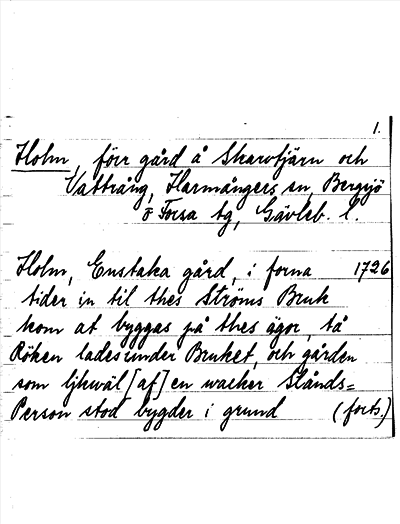 1.
Holm, förr gård å Skarvtjärn och
Vattrång, Harmångers sn, Bergsjö
o Forsa tg, Gävleb. l.
Holm, Enstaka gård, i forna 1726
tider in til thes Ströms Bruk
kom at byggas på thes ägor, tå
Röken lades under Bruket, och gården
som ljkwäl [af] en wacker Stånds=
Person stod bygder i grund (forts.)